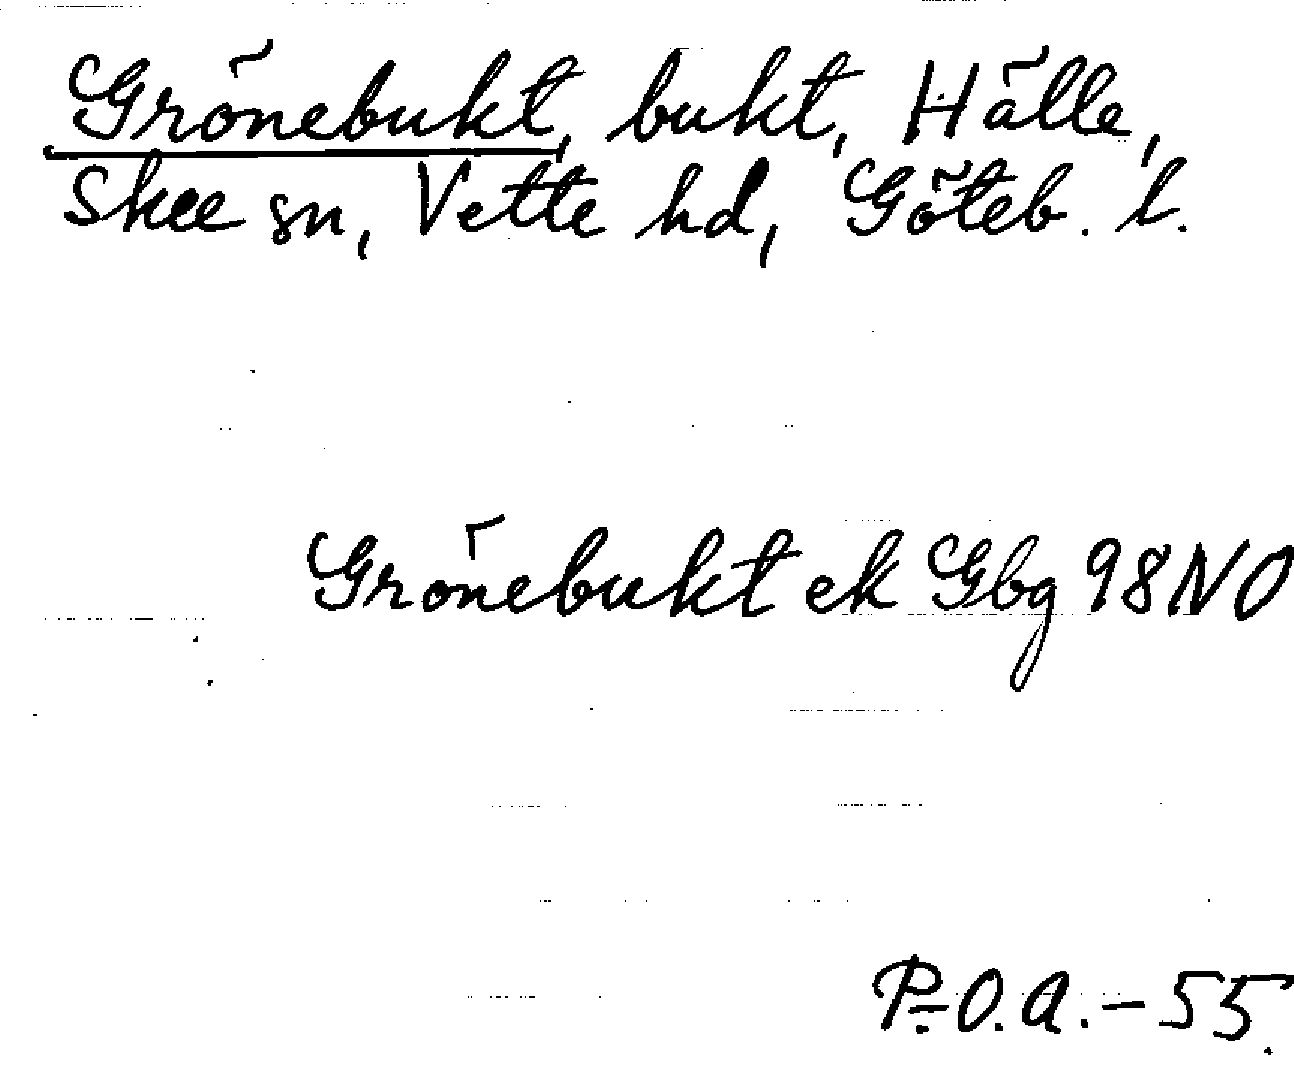 Grönebukt, bukt, Hälle,
Skee sn, Vette hd, Göteb. l.
Grönebukt ek Gbg 98NO
P.-O.A.-55.